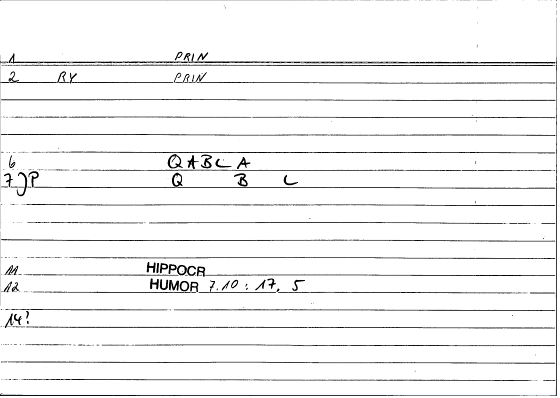 1 PRIN
2 RY PRIN
6 QABCA
7)P Q B C
11 HIPPOCR
12 HUMOR 7.10 : 17, 5
14?